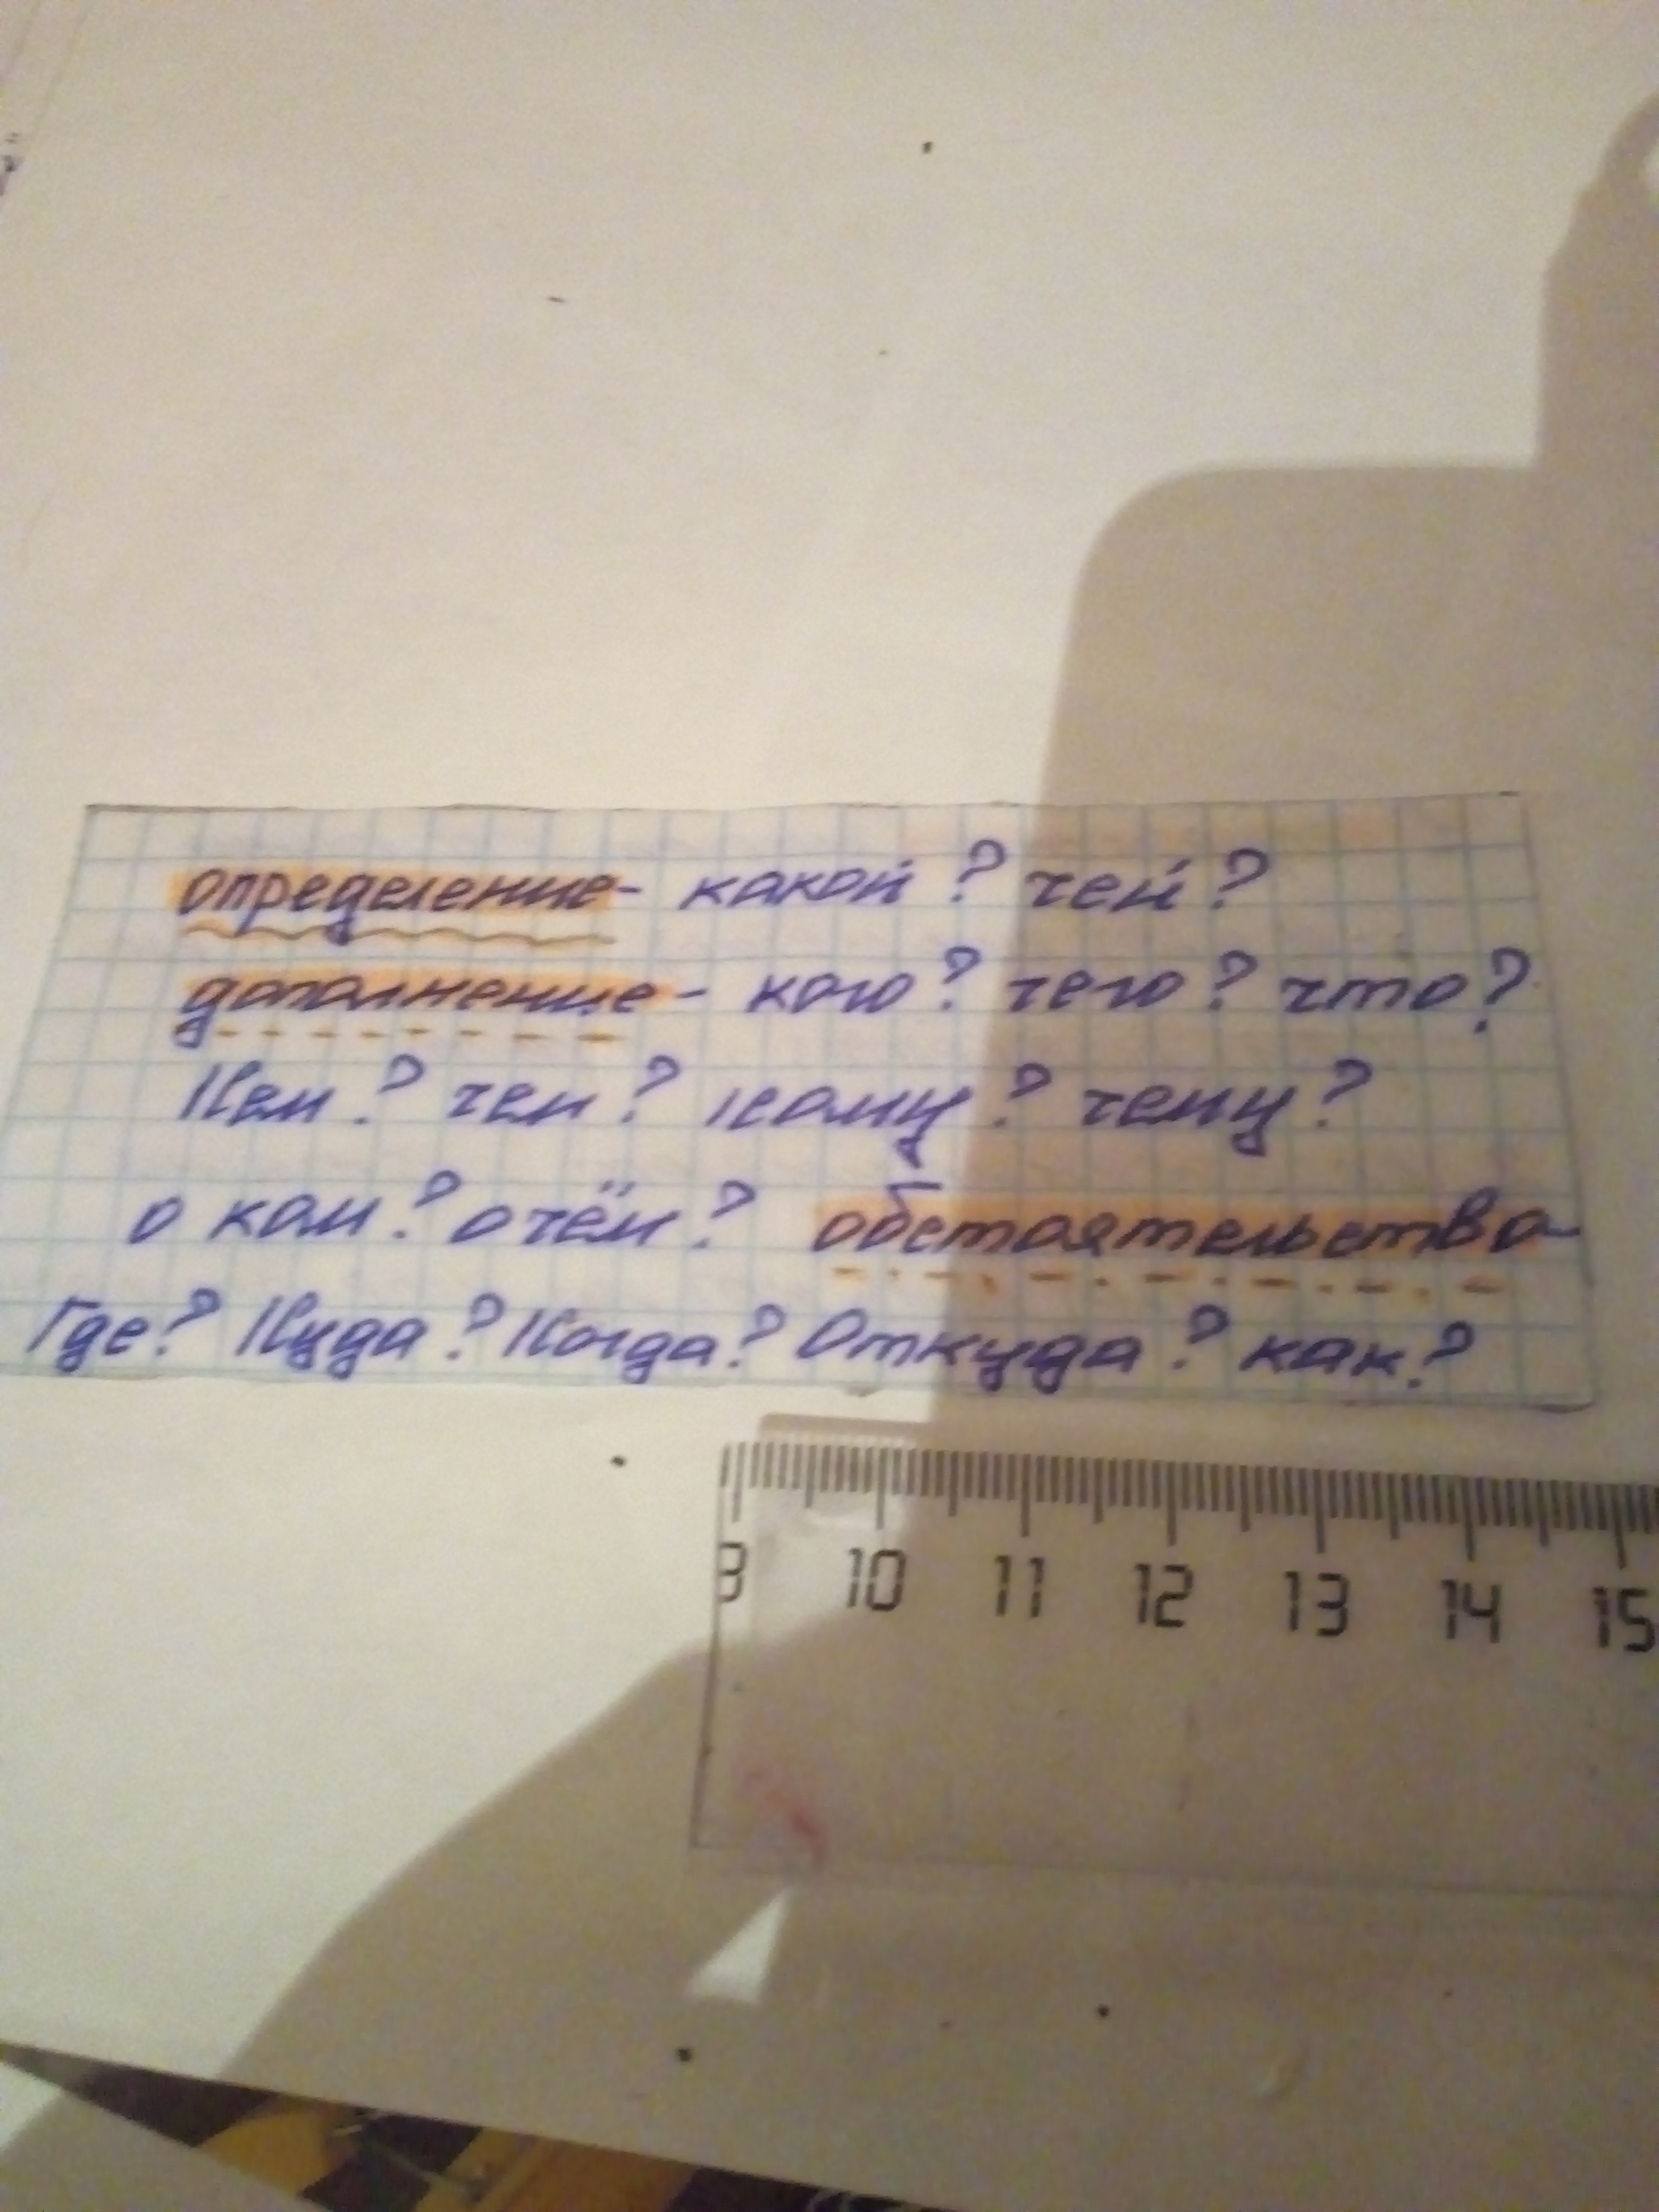 определение- какой? чей?
дополнение- кого? чего? что?
Кем? чем? кому? чему?
о ком? о чём? обстоятельство-
Где? Куда? Когда? Откуда? как?
10 11 12 13 14 15